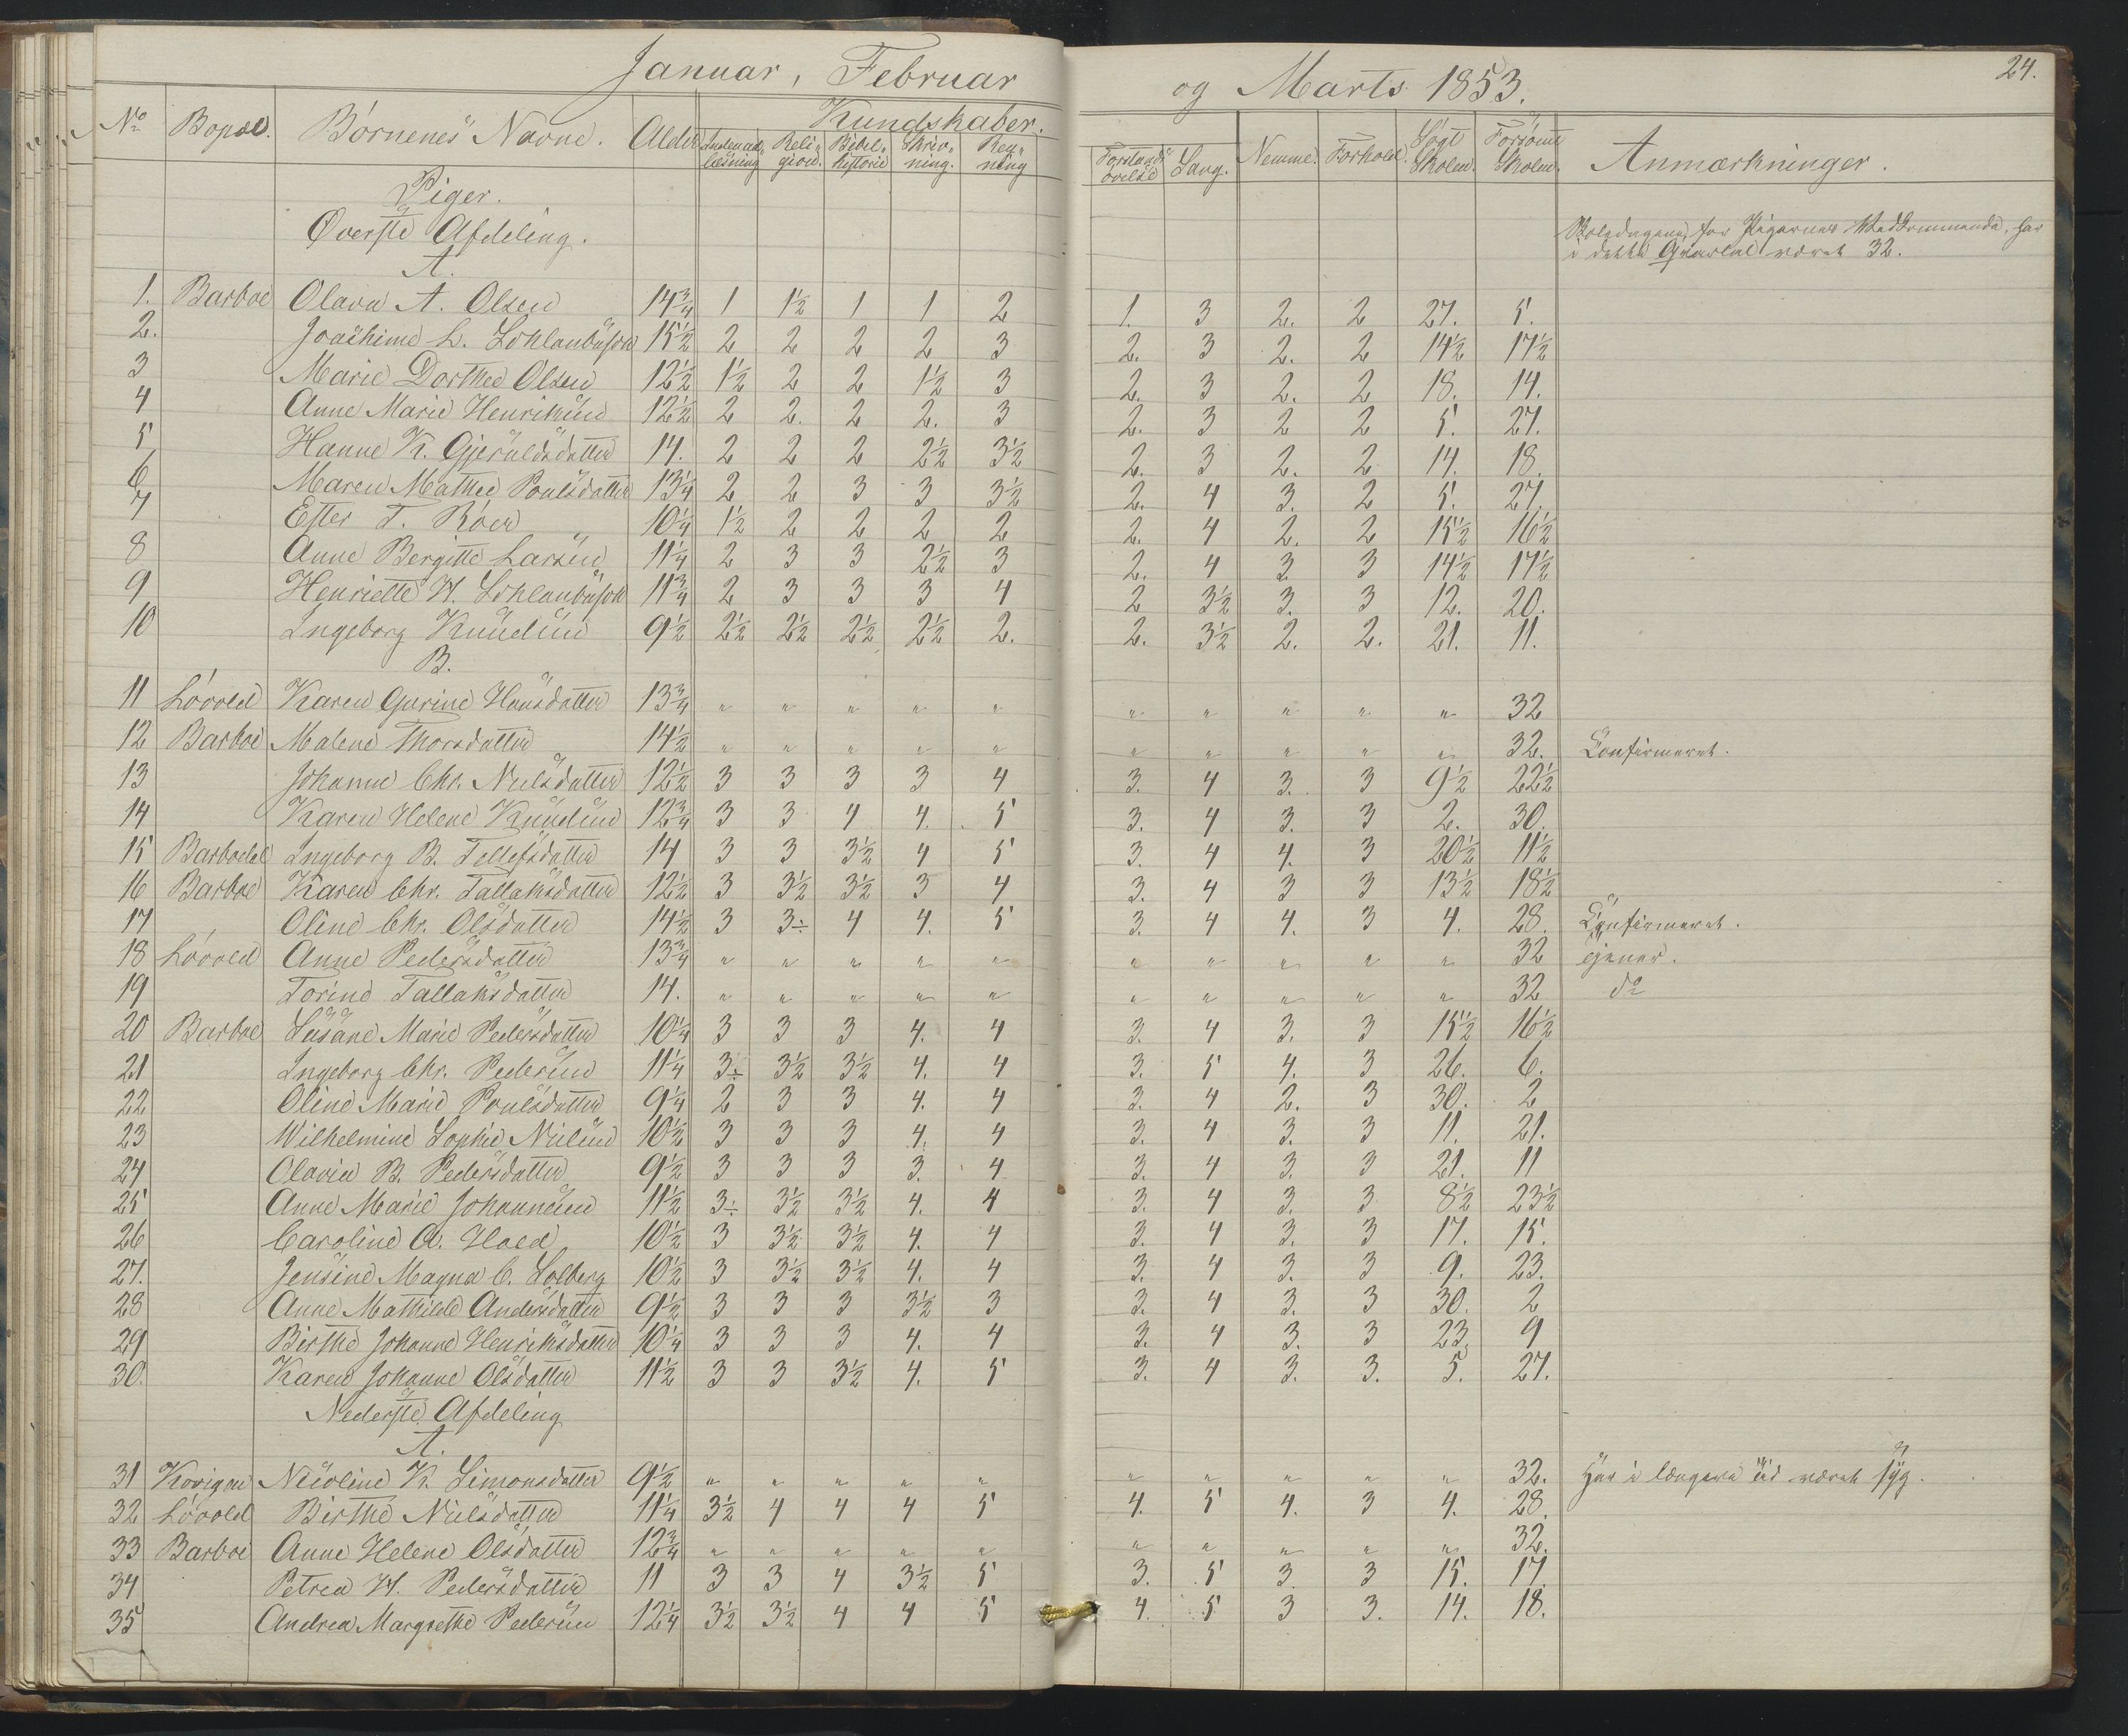 Januar, Februar og Marts 1853. 24.
No Bopæl. Børnenes Navne. Alder Kundskaber.
Indenad-læsning Reli-gion. Bibel-historie Skriv-ning. Reg-ning Forstands-øvelse Sang. Nemme. Forhold. Søgt Skolen. Forsømt Skolen. Anmærkninger.
Piger.
Øverste Afdeling.
A.
Skoledagene, for Pigernes Vedkommende, har
i dette Qvartal været 32.
1. Barboe Olava A. Olsen 14 3/4 1 1 1/2 1 1 2 1. 3 2. 2 27. 5.
2. Joachime L. Schlanbusch 15 1/2 2 2 2 2 3 2. 3 2. 2 14 1/2 17 1/2
3 Marie Dorthea Olsen 12 1/2 1 1/2 2 2 1 1/2 3 2. 3 2. 2 18. 14.
4 Anne Marie Henriksen 12 1/2 2 2. 2 2. 3 2. 3 2 2 5. 27.
5 Hanne K. Gjeruldsdatter 14. 2 2 2 2 1/2 3 1/2 2. 3 2. 2 14. 18.
6 Maren Mathea Poulsdatter 13 1/4 2 2 3 3 3 1/2 2. 4 3. 2 5. 27.
7 Ester T. Røen 10 1/4 1 1/2 2 2 2 2 2. 4 2. 2 15 1/2 16 1/2
8 Anne Bergitte Larsen 11 1/4 2 3 3 2 1/2 3 2. 4 3. 3 14 1/2 17 1/2
9 Henriette W. Schlanbusch 11 3/4 2 3 3 3 4 2 3 1/2 3. 3 12. 20.
10 Ingeborg Knudsen 9 1/2 2 1/2 2 1/2 2 1/2 2 1/2 2. 2. 3 1/2 2. 2. 21. 11.
B.
11 Løvold Karen Gurine Hansdatter 13 3/4 " " " " " " " " " " 32
12 Barboe Malene Thorsdatter 14 1/2 " " " " " " " " " " 32. Confirmeret.
13 Johanne Chr. Nielsdatter 12 1/2 3 3 3 3 4 3. 4 3. 3 9 1/2 22 1/2
14 Karen Helene Knudsen 12 3/4 3 3 4 4. 5 3. 4 3. 3 2. 30.
15 Barboedal Ingeborg B. Tellefsdatter 14 3 3 3 1/2 4 5 3. 4 4. 3 20 1/2 11 1/2
16 Barboe Karen Chr. Tallaksdatter 12 1/2 3 3 1/2 3 1/2 3 4 3. 4 3 3 13 1/2 18 1/2
17 Oline Chr. Olsdatter 14 1/2 3 3÷ 4 4. 5 3. 4 4. 3 4. 28. Confirmeret.
18 Løvold Anne Pedersdatter 13 3/4 " " " " " " " " " " 32 tjener.
19 Torine Tallaksdatter 14. " " " " " " " " " " 32 do
20 Barboe Susane Marie Pedersdatter 10 1/4 3 3 3 4. 4 3. 4 3. 3 15 1/2 16 1/2
21 Ingeborg Chr. Pedersen 11 1/4 3÷ 3 1/2 3 1/2 4. 4 3. 5 4. 3 26. 6.
22 Oline Marie Poulsdatter 9 1/4 2 3 3 4. 4 3. 4 2. 3 30. 2
23 Wilhelmine Sophie Nielsen 10 1/2 3 3 3 4. 4 3. 4 3. 3 11. 21.
24 Olavia B. Pedersdatter 9 1/2 3 3 3 3. 4 3. 4 3. 3 21. 11
25 Anne Marie Johannesen 11 1/2 3÷ 3 1/2 3 1/2 4. 4 3. 4 3. 3 8 1/2 23 1/2
26 Caroline A. Holed 10 1/2 3 3 1/2 3 1/2 4. 4 3. 4 3. 3 17. 15.
27. Jensine Magna C. Solberg 10 1/2 3 3 1/2 3 1/2 4. 4 3. 4 3. 3 9. 23.
28 Anne Mathilde Andersdatter 9 1/2 3 3 3 3 1/2 3 3. 4 3. 3 30. 2
29 Birthe Johanne Henriksdatter 10 1/4 3 3 3 4. 4 3. 4 3. 3 23. 9
30. Karen Johanne Olsdatter 11 1/2 3 3 3 1/2 4. 5 3. 4 3. 3. 5. 27.
Nederste Afdeling
A.
31 Kovigen Nicoline K. Simonsdatter 9 1/2 " " " " " " " " " " 32. Har i længere Tid været syg.
32 Løvold Birthe Nielsdatter 11 1/4 3 1/2 4 4 4 5 4. 5 4. 3 4. 28.
33 Barboe Anne Helene Olsdatter 12 3/4 " " " " " " " " " " 32.
34 Petrea W. Pedersdatter 11 3 3 4 3 1/2 5 3. 5 3. 3 15. 17.
35 Andrea Margrethe Pedersen 12 1/4 3 1/2 3 1/2 4 4 5 4. 5 3 3. 14. 18.